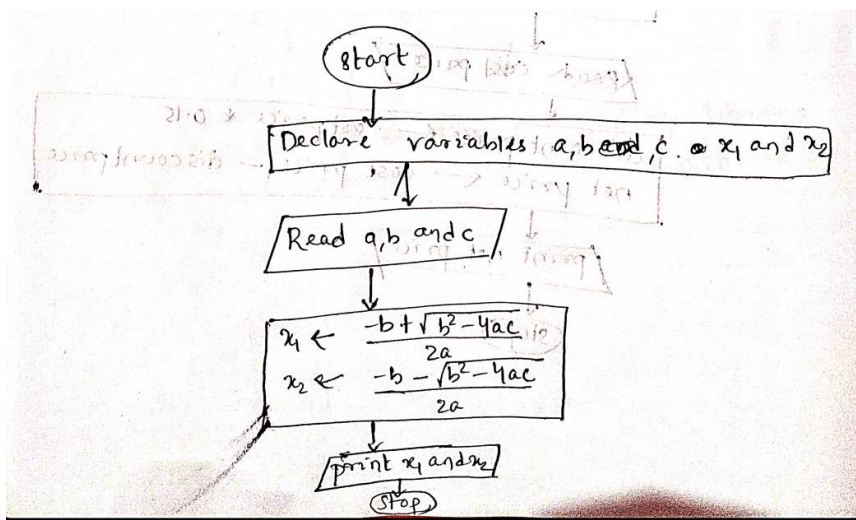 start
Declare variables a, b, c. x₁ and x₂
Read a, b and c
x₁ ← (-b + √(b² - 4ac)) / 2a
x₂ ← (-b - √(b² - 4ac)) / 2a
print x₁ and x₂
stop